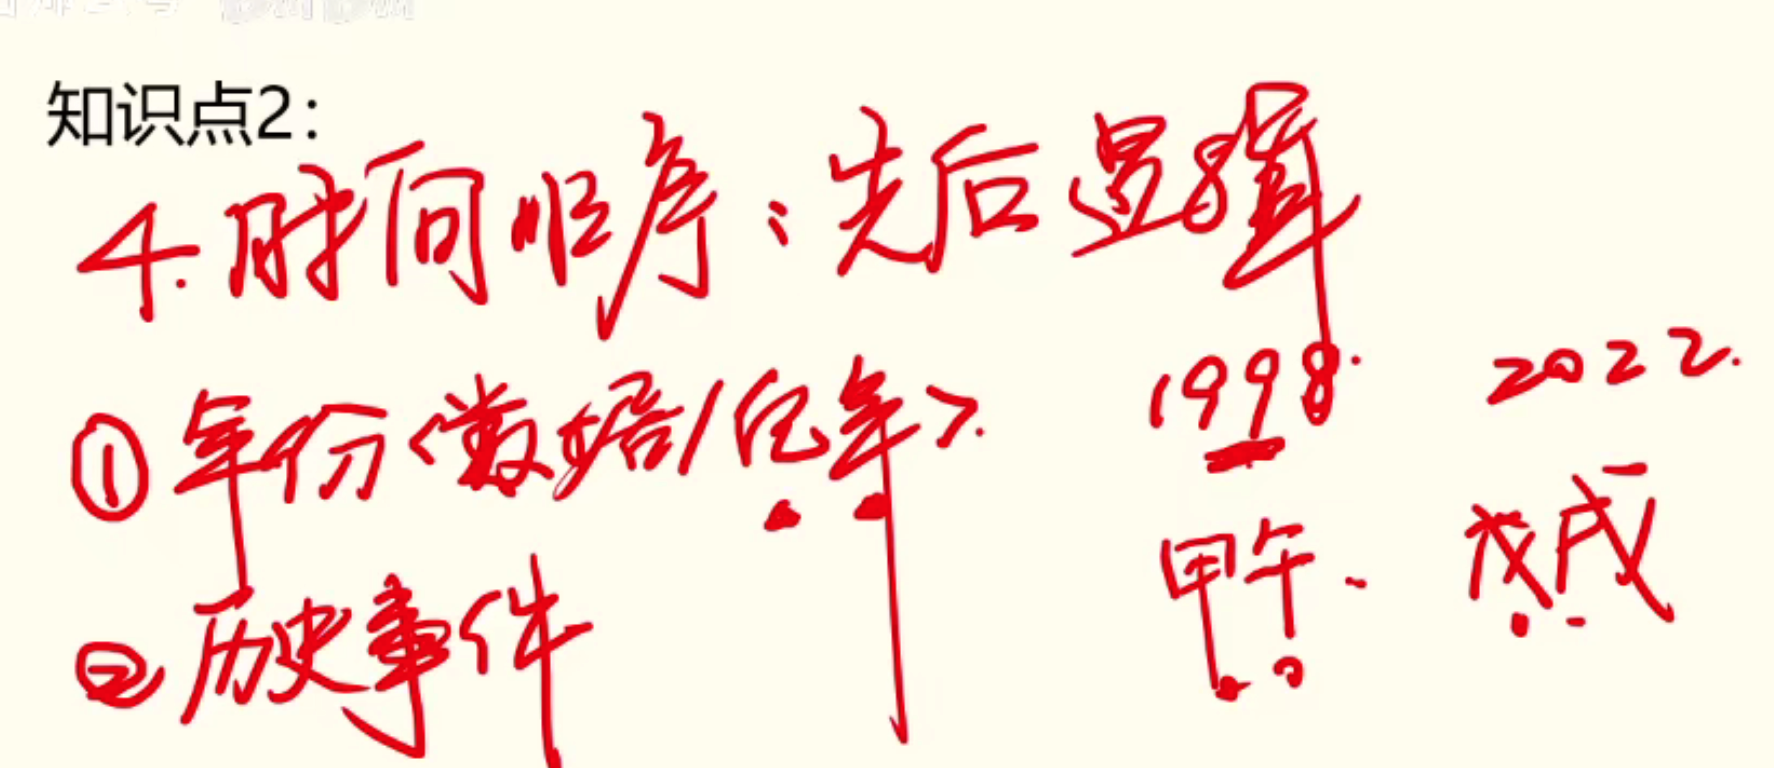 知识点2：
4.时间顺序：先后逻辑
①年份<数据/纪年>. 1998. 2022.
甲午、戊戌
②历史事件